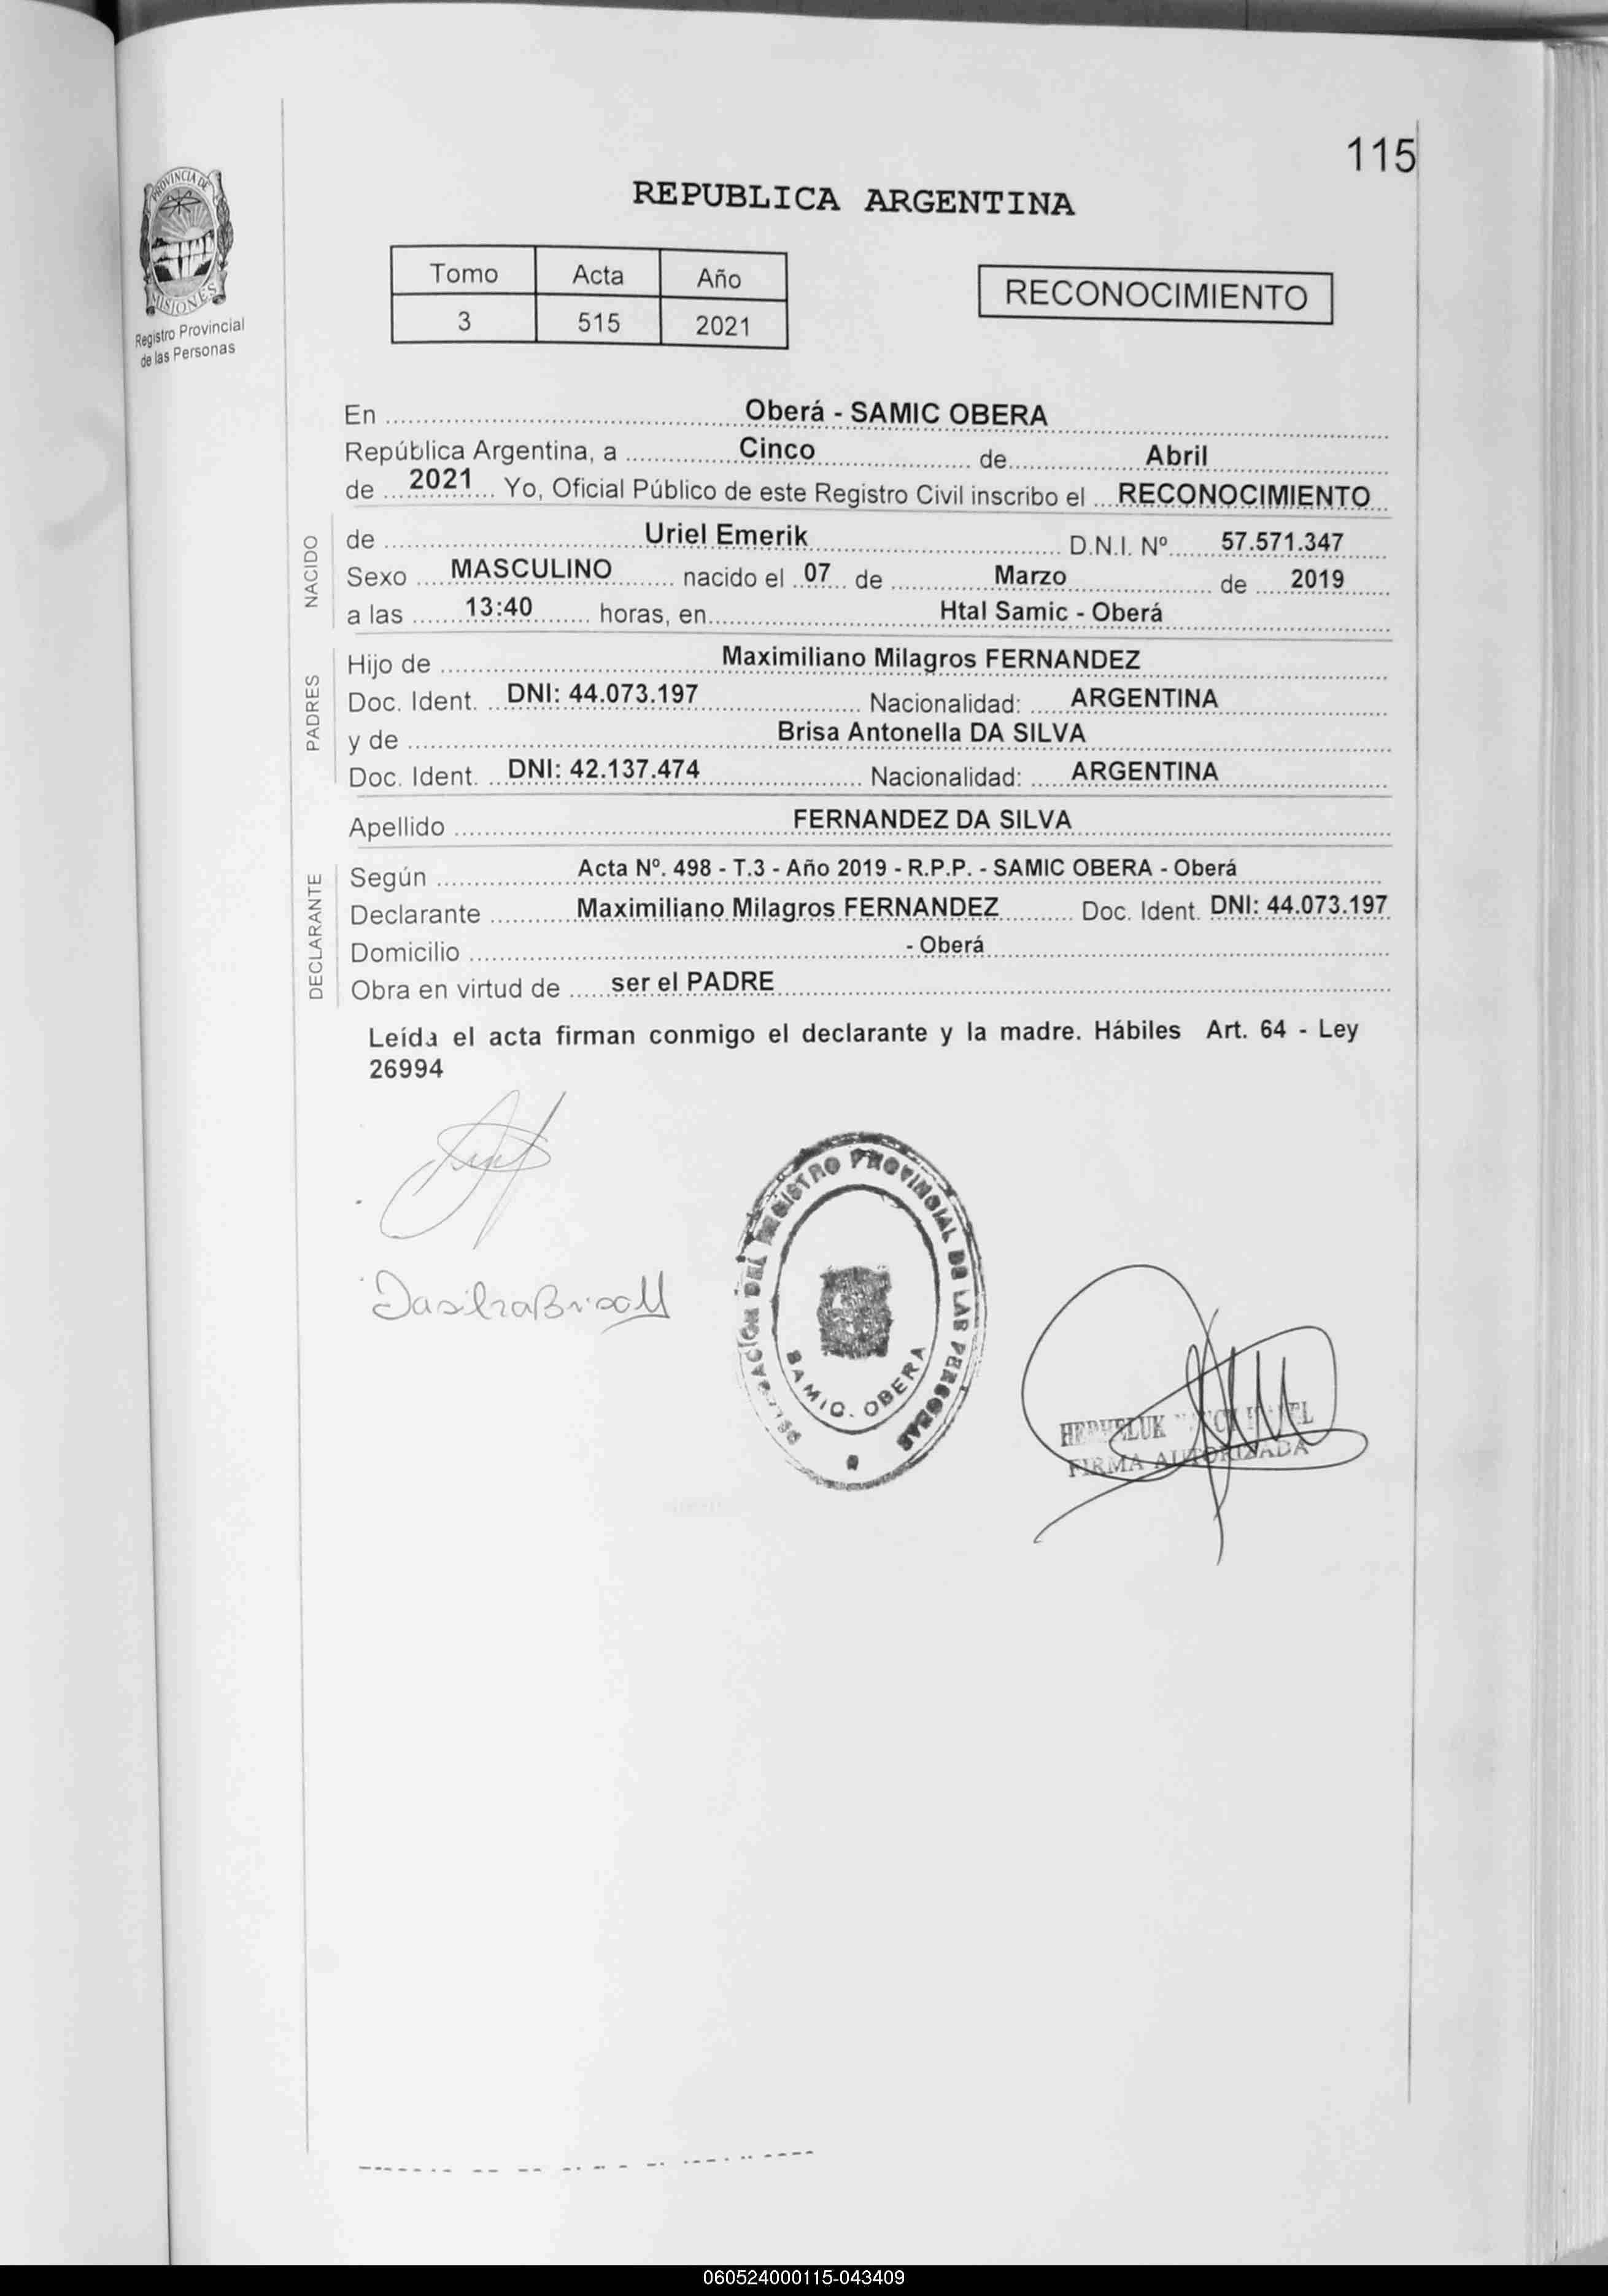 115
PROVINCIA DE
MISIONES
Registro Provincial
de las Personas
REPUBLICA ARGENTINA
Tomo Acta Año
3 515 2021
RECONOCIMIENTO
En Oberá - SAMIC OBERA
República Argentina, a Cinco de Abril
de 2021 Yo, Oficial Público de este Registro Civil inscribo el RECONOCIMIENTO
NACIDO
de Uriel Emerik D.N.I. Nº 57.571.347
Sexo MASCULINO nacido el 07 de Marzo de 2019
a las 13:40 horas, en Htal Samic - Oberá
PADRES
Hijo de Maximiliano Milagros FERNANDEZ
Doc. Ident. DNI: 44.073.197 Nacionalidad: ARGENTINA
y de Brisa Antonella DA SILVA
Doc. Ident. DNI: 42.137.474 Nacionalidad: ARGENTINA
Apellido FERNANDEZ DA SILVA
DECLARANTE
Según Acta Nº. 498 - T.3 - Año 2019 - R.P.P. - SAMIC OBERA - Oberá
Declarante Maximiliano Milagros FERNANDEZ Doc. Ident. DNI: 44.073.197
Domicilio - Oberá
Obra en virtud de ser el PADRE
Leída el acta firman conmigo el declarante y la madre. Hábiles Art. 64 - Ley
26994
DELEGACION DEL REGISTRO PROVINCIAL DE LAS PERSONAS
SAMIC. OBERA
FIRMA AUTORIZADA
060524000115-043409